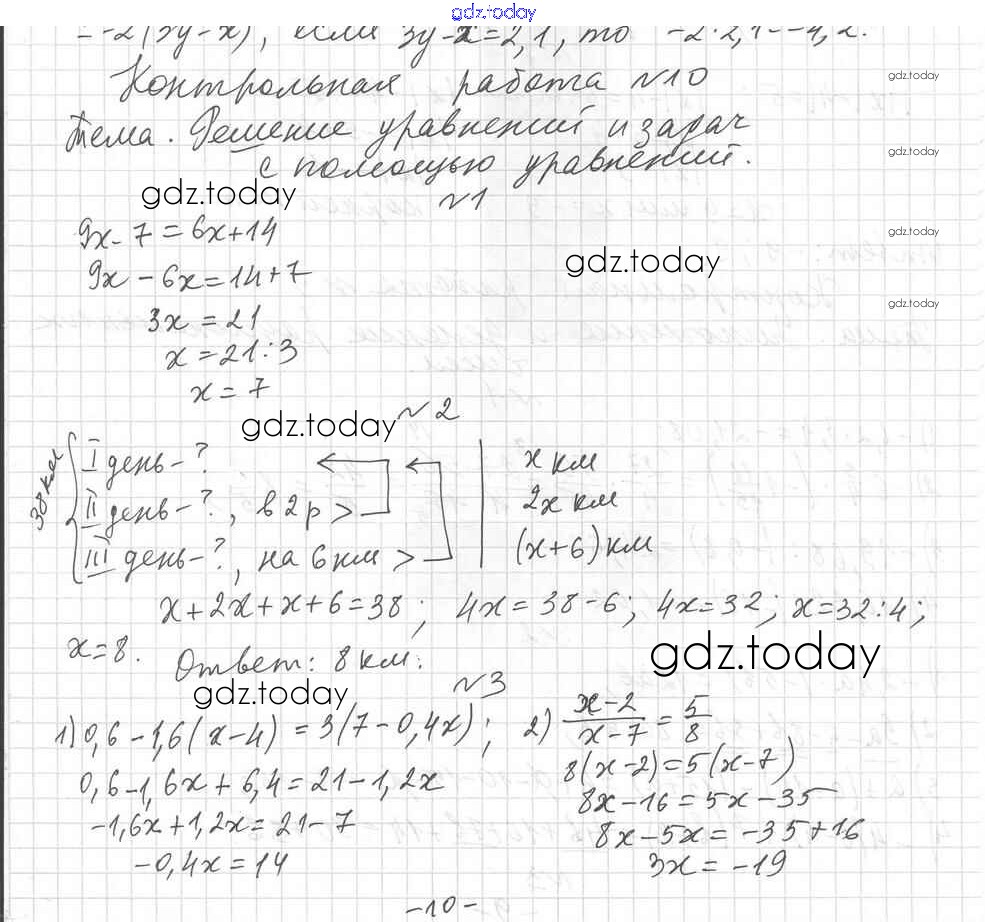 gdz.today
= -2(3y-x), если 3y-x=2,1, то -2·2,1=-4,2.
Контрольная работа №10
gdz.today
Тема. Решение уравнений и задач
с помощью уравнений.
gdz.today
gdz.today
№1
9x-7=6x+14
gdz.today
9x-6x=14+7
gdz.today
gdz.today
3x=21
x=21:3
x=7
gdz.today
№2
38 км
I день-?
x км
II день-?, в 2 р >
2x км
III день-?, на 6 км >
(x+6) км
x+2x+x+6=38; 4x=38-6; 4x=32; x=32:4;
x=8. Ответ: 8 км.
gdz.today
gdz.today
№3
1) 0,6-1,6(x-4)=3(7-0,4x); 2) x-2/x-7=5/8
0,6-1,6x+6,4=21-1,2x
8(x-2)=5(x-7)
8x-16=5x-35
-1,6x+1,2x=21-7
8x-5x=-35+16
-0,4x=14
3x=-19
-10-